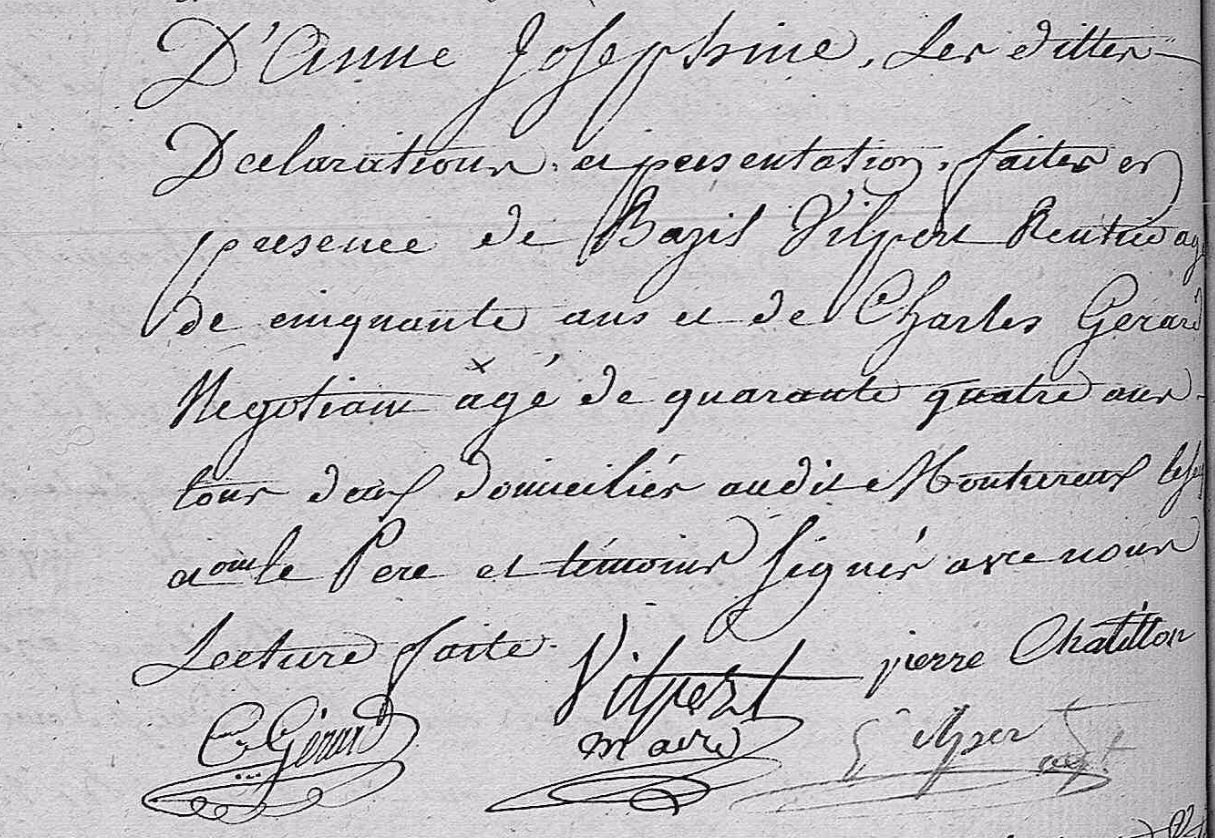 D'Anne Josephine, Les dittes
Declarations et presentation, faites en
presence de Bazil Vilpert Rentier agé
de cinquante ans et de Charles Gerard
Negotiant âgé de quarante quatre ans
tous deux domiciliés audit Montureux
le Pere et témoins signés avec nous
Lecture faite.
Vilpert pierre Chatillon
C. Gérard maire